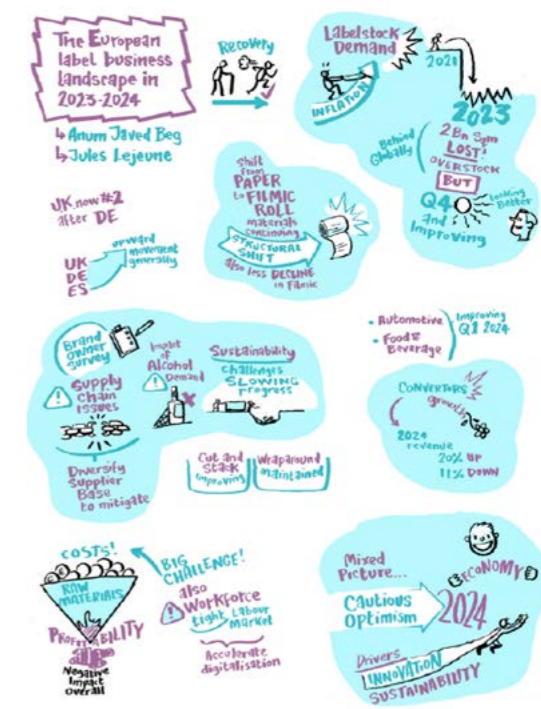 The European
label business
landscape in
2023-2024
Anum Javed Beg
Jules Lejeune
Recovery
Labelstock
Demand
INFLATION
2021
2023
2Bn Sqm
LOST!
OVERSTOCK
BUT
Behind
Globally
Q4
Looking
Better
and
Improving
UK now #2
after DE
UK
DE
ES
upward
movement
generally
Shift
from
PAPER
to FILMIC
ROLL
materials
continuing
STRUCTURAL
SHIFT
also less DECLINE
in Filmic
Brand
Owner
Survey
Supply
Chain
Issues
Diversify
Supplier
Base
to mitigate
Impact
of
Alcohol
Demand
Sustainability
Challenges
SLOWING
progress
Cut and
Stack
Improving
Wraparound
maintained
• Automotive
• Food &
Beverage
Improving
Q1 2024
CONVERTORS
growth
2024
revenue
20% UP
11% DOWN
COSTS!
RAW
MATERIALS
PROFITABILITY
Negative
Impact
Overall
BIG
CHALLENGE!
also
Workforce
tight Labour
Market
Accelerate
digitalisation
Mixed
Picture...
ECONOMY
Cautious
Optimism
2024
Drivers
INNOVATION
SUSTAINABILITY